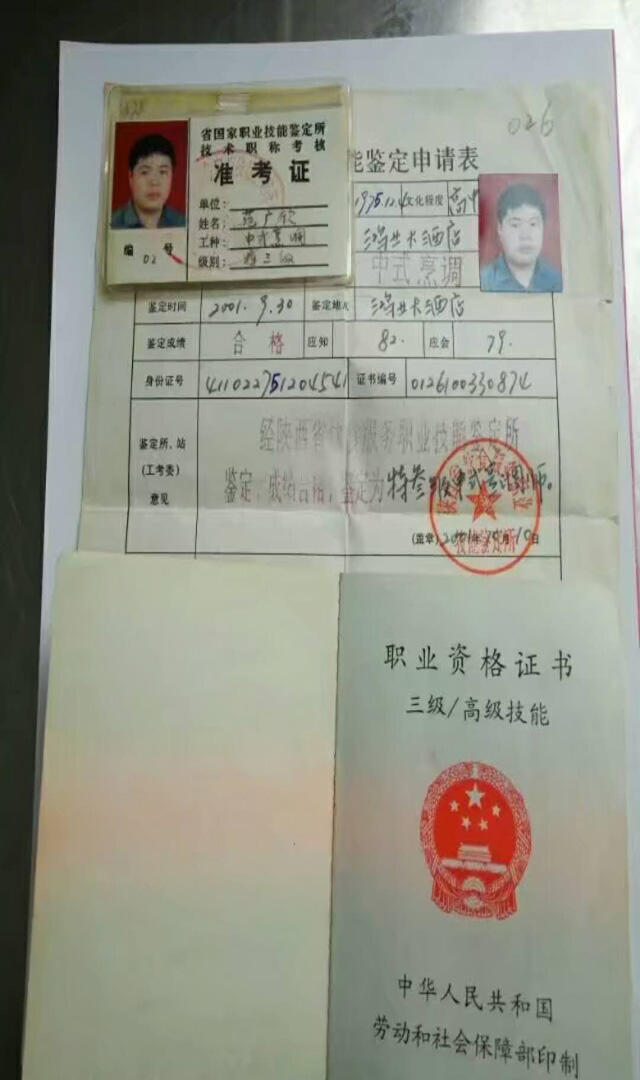 省国家职业技能鉴定所
技术职称考核
准考证
单位：
姓名：范广欣
工种：中式烹调
级别：特三级
编号
02
026
能鉴定申请表
1975.12.4 文化程度 高中
鸿业大酒店
中式烹调
鉴定时间 2001.9.30 鉴定地点 鸿业大酒店
鉴定成绩 合格 应知 82. 应会 79.
身份证号 411022751204541 证书编号 0126100330874
鉴定所、站
(工考委)
意见
经陕西省饮食服务职业技能鉴定所
鉴定，成绩合格，鉴定为特叁级中式烹调师。
(盖章) 2001年10月10日
技能鉴定所
职业资格证书
三级/高级技能
中华人民共和国
劳动和社会保障部印制